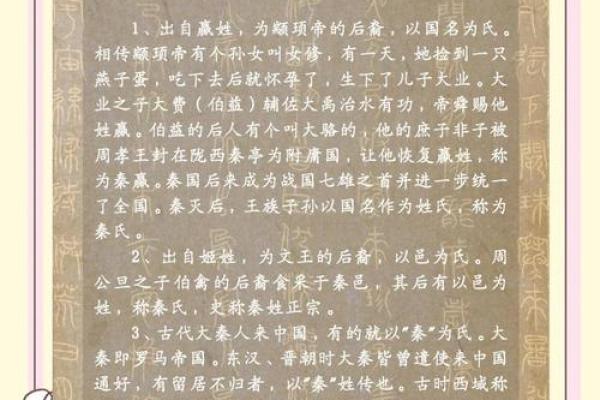 1、出自嬴姓，为颛顼帝的后裔，以国名为氏。
相传颛顼帝有个孙女叫女修，有一天，她捡到一只
燕子蛋，吃下去后就怀孕了，生下了儿子大业。大
业之子大费（伯益）辅佐大禹治水有功，帝舜赐他
姓嬴。伯益的后人有个叫大骆的，他的庶子非子被
周孝王封在陇西秦亭为附庸国，让他恢复嬴姓，称
为秦嬴。秦国后来成为战国七雄之首并进一步统一
了全国。秦灭后，王族子孙以国名作为姓氏，称为
秦氏。
2、出自姬姓，为文王的后裔，以邑为氏。周
公旦之子伯禽的后裔食采于秦邑，其后有以邑为
姓，称秦氏，史称秦姓正宗。
3、古代大秦人来中国，有的就以"秦"为氏。大
秦即罗马帝国。东汉、晋朝时大秦皆曾遣使来中国
通好，有留居不归者，以"秦"姓传也。古时西域称